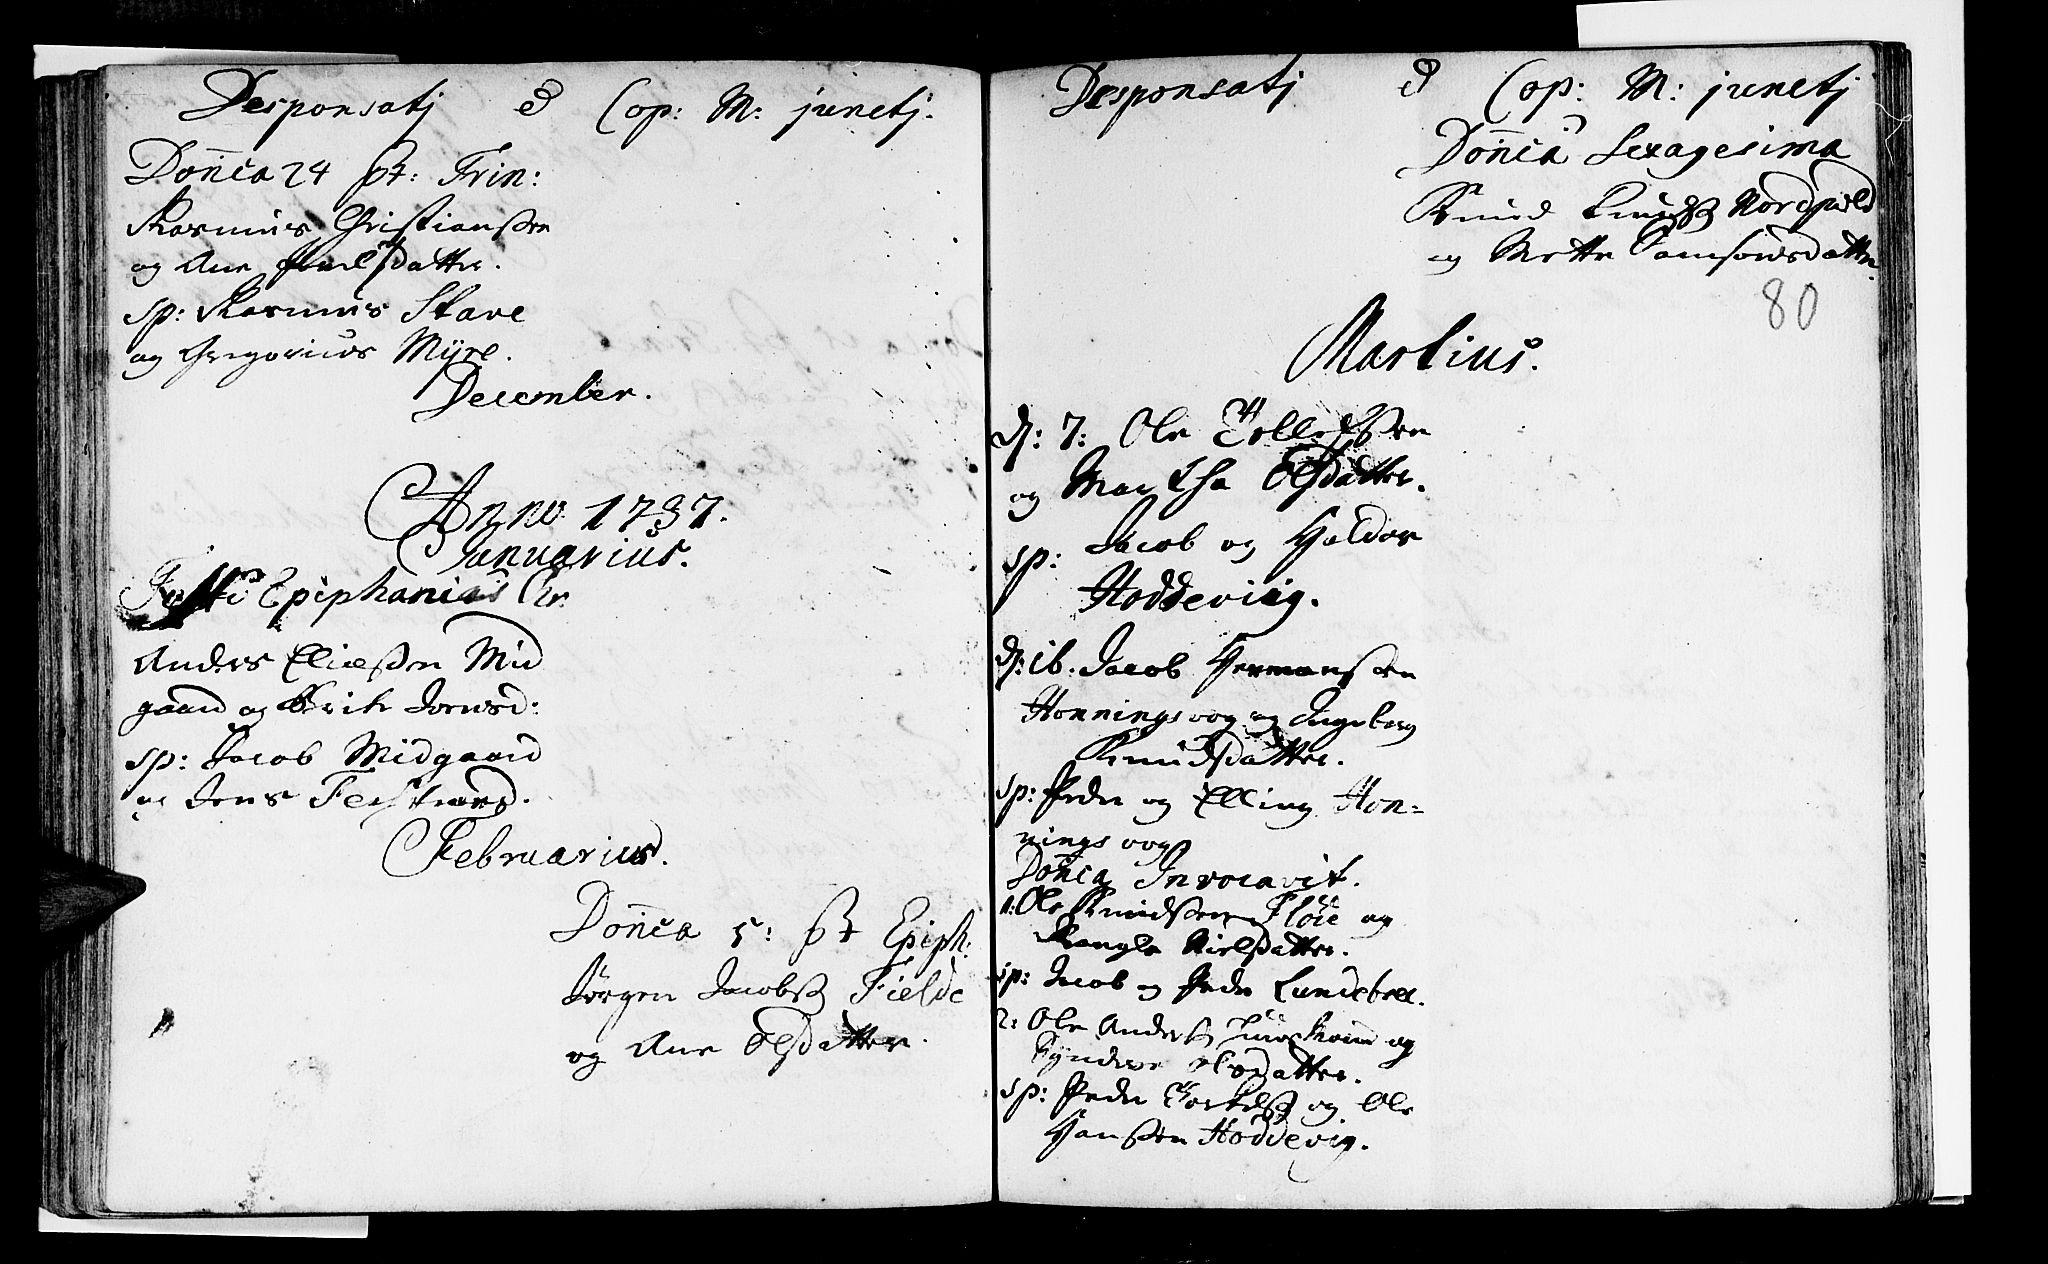 Desponsatj & Cop: M: junctj.
Don̄ica 24 pt: Trin:
Rasmus Christianssen
og Ane Poulsdatter.
sp: Rasmus Stave
og Gregorius Myre.
December.
Anno 1737.
Januarius.
Festo Epiphanias Chr.
Anders Eliassen Mid
gaard og Jonsd:
sp: Jacob Midgaard
og Jens
Februarius.
Don̄ica 5: pt Epiph:
Jørgen Jacobss Fielde
og Ane Olsdatter.
Desponsatj & Cop: M: junctj
Don̄ica Sexagesima
Knud Knudss Nordpeld
og Mette Samsonsdatter.
80
Martius.
d: 7: Ole Tollefssen
og Martha Olsdatter.
sp: Jacob og Haldor
Hoddeviig.
d: 16. Jacob Hermanssen
Honningsvog og Ingeborg
Knudsdatter.
sp: Peder og Elling Hon=
ningsvog
Don̄ica Invocavit.
1: Ole Knudssen Fløie og
Rangle Nielsdatter.
sp: Jacob og Peder Lundebrec.
2: Ole Anderss og
Synneve Olsdatter.
sp: Peder Torkelss og Ole
Hanssen Hoddevig.